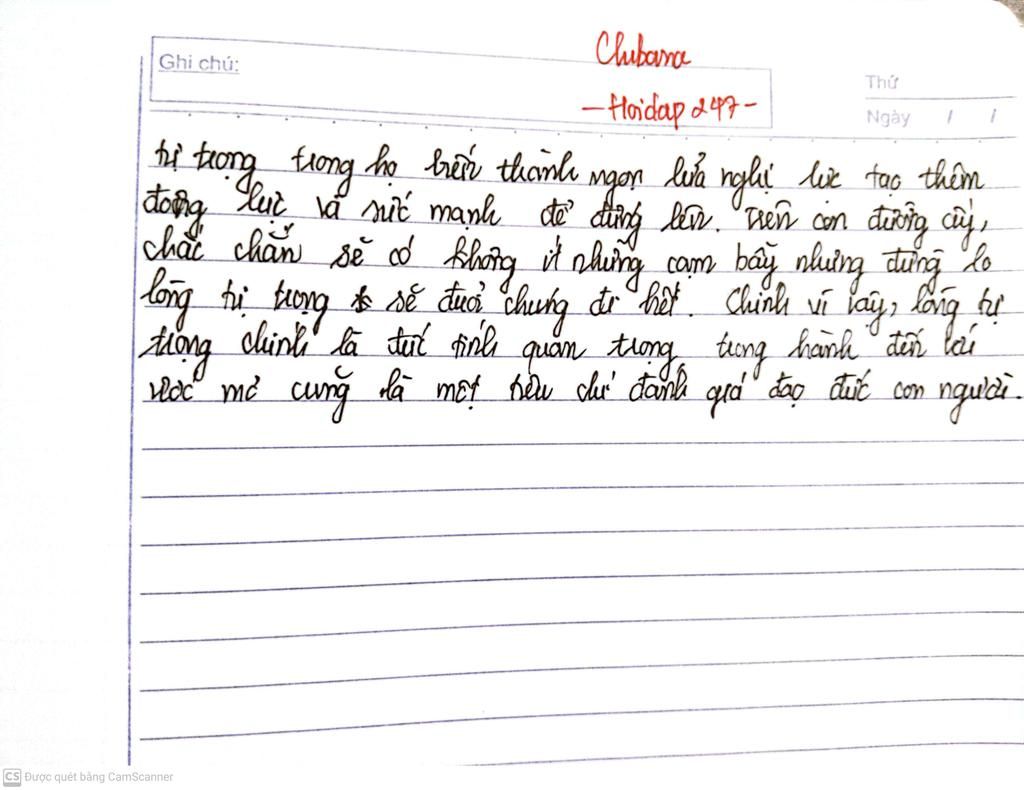 Chibana
Ghi chú:
Thứ
- Hoidap 247 -
Ngày / /
tự trọng trong họ biến thành ngọn lửa nghị lực tạo thêm
động lực và sức mạnh để đứng lên. Trên con đường ấy,
chắc chắn sẽ có không ít những cạm bẫy nhưng đừng lo
lòng tự trọng sẽ đuổi chúng đi hết. Chính vì vậy, lòng tự
trọng chính là đức tính quan trọng trong hành đến với
ước mơ cũng là một tiêu chí đánh giá đạo đức con người.
CS Được quét bằng CamScanner